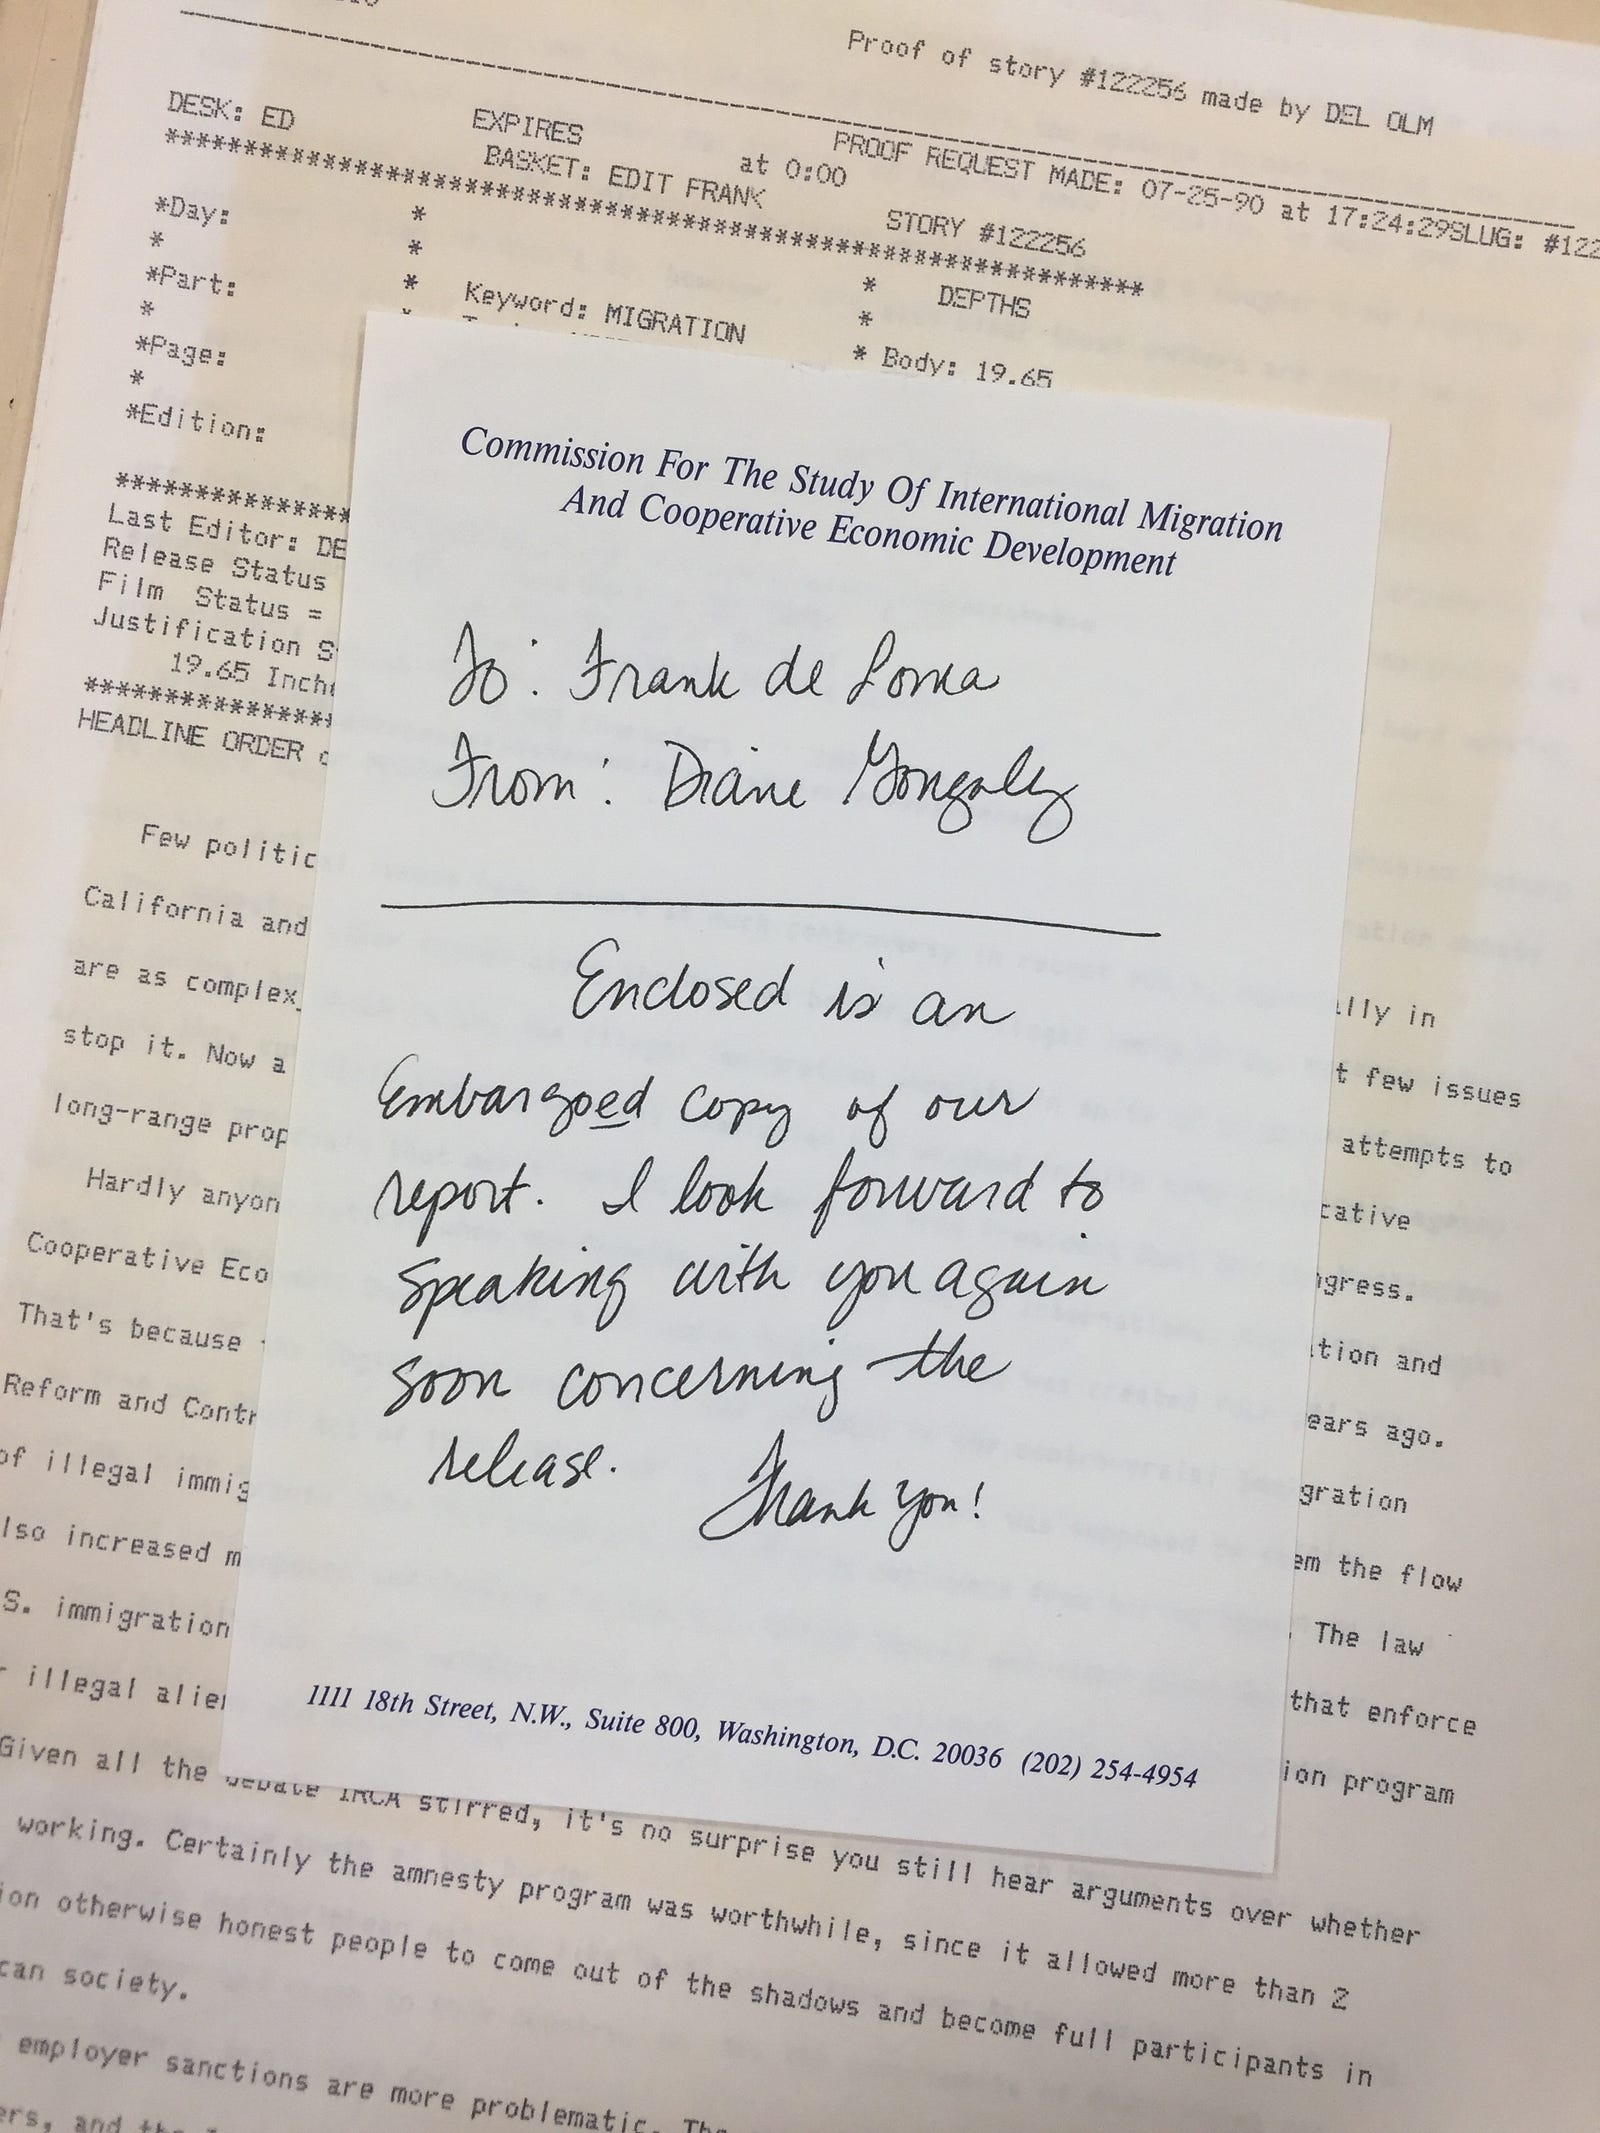 Proof of story #122256 made by DEL OLM
DESK: ED EXPIRES at 0:00 PROOF REQUEST MADE: 07-25-90 at 17:24:29SLUG: #122
BASKET: EDIT FRANK STORY #122256
***********************************************************************
*Day: * * DEPTHS
* * Keyword: MIGRATION *
*Part: * * Body: 19.65
*
*Page:
*
*Edition:
***************
Last Editor: DE
Release Status
Film Status =
Justification S
19.65 Inch
***************
HEADLINE ORDER
Few politic
California and
are as complex
stop it. Now a
long-range prop
Hardly anyon
Cooperative Eco
That's because
Reform and Contr
of illegal immig
lso increased m
S. immigration
r illegal alien
Given all the debate IRCA stirred, it's no surprise you still hear arguments over whether
working. Certainly the amnesty program was worthwhile, since it allowed more than 2
ion otherwise honest people to come out of the shadows and become full participants in
can society.
employer sanctions are more problematic. The
ers, and the
Commission For The Study Of International Migration
And Cooperative Economic Development
To: Frank de Lorca
From: Diane Gonzalez
Enclosed is an
Embargoed copy of our
report. I look forward to
speaking with you again
soon concerning the
release. Thank you!
1111 18th Street, N.W., Suite 800, Washington, D.C. 20036 (202) 254-4954
lly in
t few issues
attempts to
cative
ngress.
tion and
ears ago.
gration
em the flow
. The law
that enforce
ion program